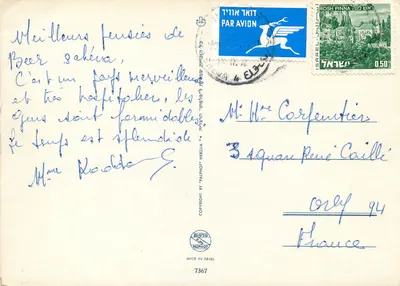 Meilleurs pensées de
Beer sahéva,
C'est un pays merveilleux
et très hospitalier, les
gens sont formidables.
Le temps est splendide.
Mme
דואר אוויר
PAR AVION
ROSH PINNA
ISRAEL
ישראל
0.50
M. Mme Carpentier
3 square René Caillé
Orly 94
France
COPYRIGHT BY PALPHOT HERZLIA
MADE IN ISRAEL
7367